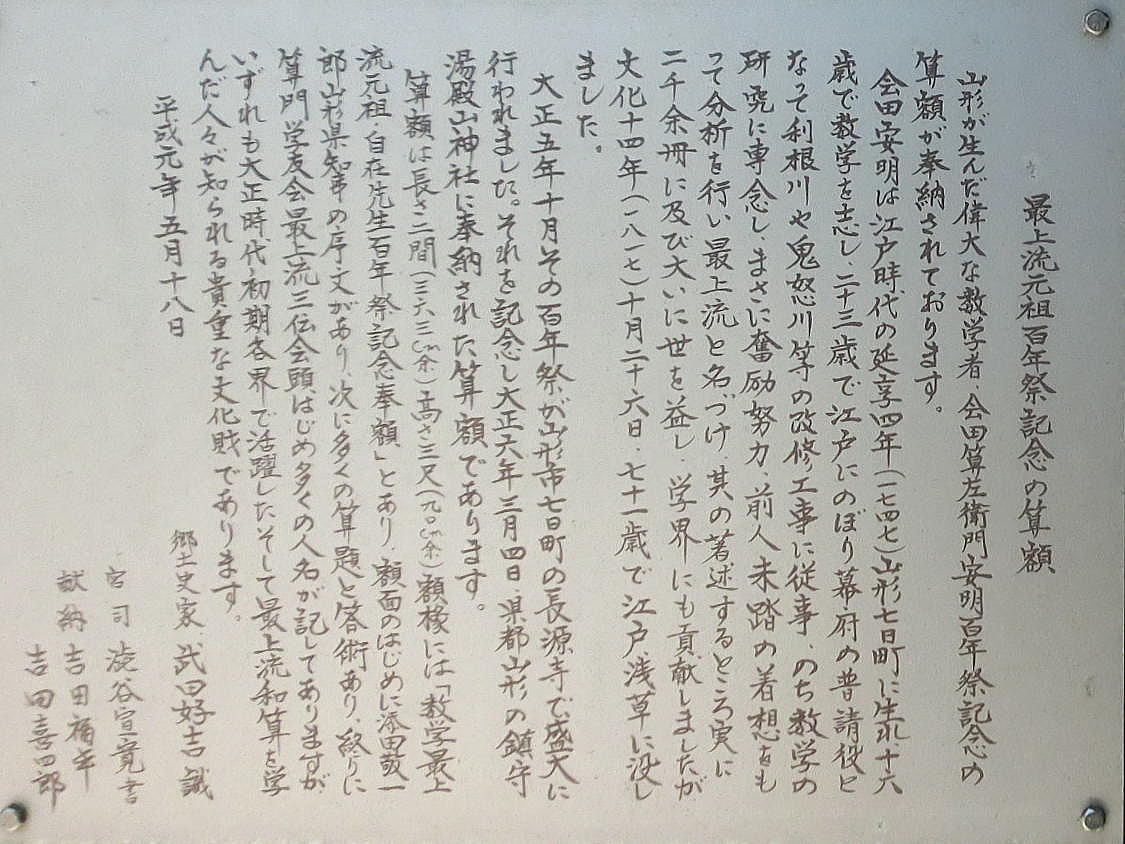 最上流元祖百年祭記念の算額
山形が生んだ偉大な数学者、会田算左衛門安明百年祭記念の
算額が奉納されております。
会田安明は江戸時代の延享四年(一七四七)山形七日町に生れ、十六
歳で数学を志し、二十三歳で江戸にのぼり幕府の普請役と
なって利根川や鬼怒川等の改修工事に従事、のち数学の
研究に専念し、まさに奮励努力、前人未踏の着想をも
って分析を行い最上流と名づけ、其の著述するところ実に
二千余冊に及び大いに世を益し、学界にも貢献しましたが
文化十四年(一八一七)十月二十六日、七十一歳で江戸、浅草に没し
ました。
大正五年十月その百年祭が山形市七日町の長源寺で盛大に
行われました。それを記念し大正六年三月四日、県都山形の鎮守
湯殿山神社に奉納された算額であります。
算額は長さ二間(三六三㎝余)高さ三尺(九〇㎝余)額縁には「数学最上
流元祖、自在先生百年祭記念奉額」とあり、額面のはじめに添田敬一
郎山形県知事の序文があり、次に多くの算題と答術あり、終りに
算門学友会最上流三伝会頭はじめ多くの人名が記してありますが
いずれも大正時代、初期各界で活躍したそして最上流和算を学
んだ人々が知られる貴重な文化財であります。
平成元年五月十八日
郷土史家、武田好吉誠
宮司 渋谷宣寛書
献納 吉田福平
吉田喜四郎